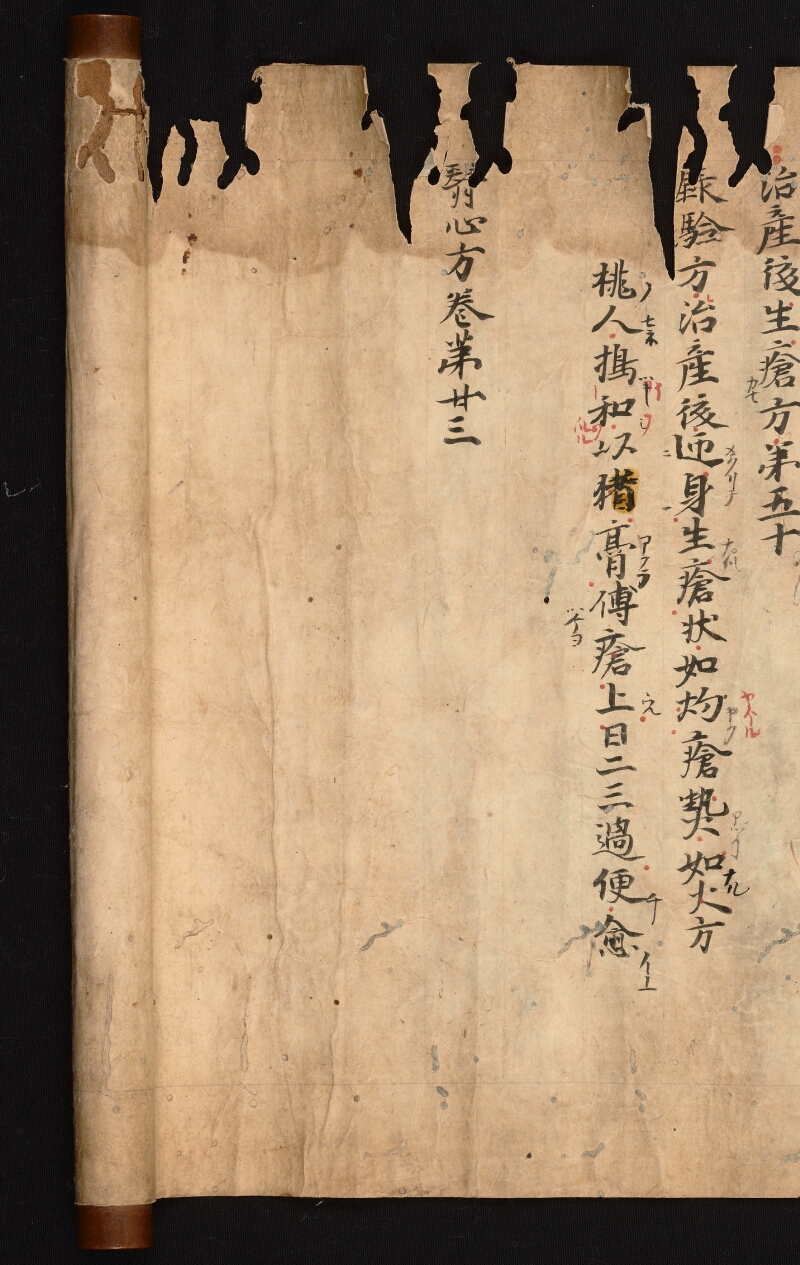 治產後生瘡方第五十
錄驗方治產後迊身生瘡狀如灼瘡熱如火方
桃人搗和以猪膏傅瘡上日二三過便愈
醫心方卷第廿三